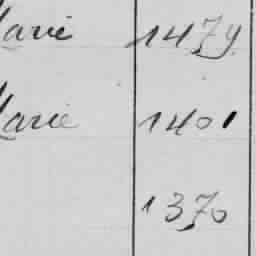 Marie 1479
Marie 1401
1370